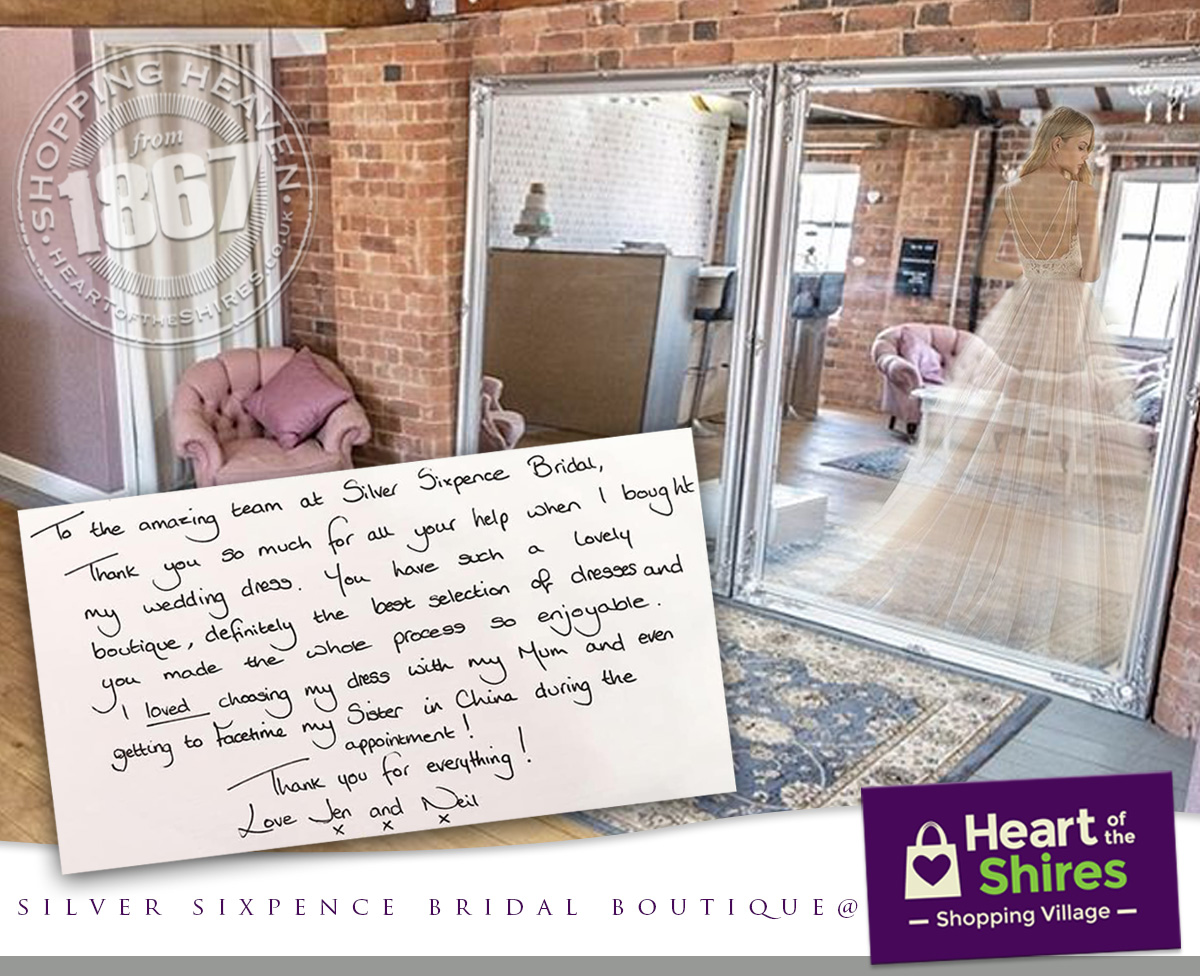 SHOPPING HEAVEN
from
1867
HEARTOFTHESHIRES.co.uk
To the amazing team at Silver Sixpence Bridal,
Thank you so much for all your help when I bought
my wedding dress. You have such a lovely
boutique, definitely the best selection of dresses and
you made the whole process so enjoyable.
I loved choosing my dress with my Mum and even
getting to facetime my Sister in China during the
appointment!
Thank you for everything!
Love Jen and Neil
x x x
Heart of the
Shires
Shopping Village
SILVER SIXPENCE BRIDAL BOUTIQUE@